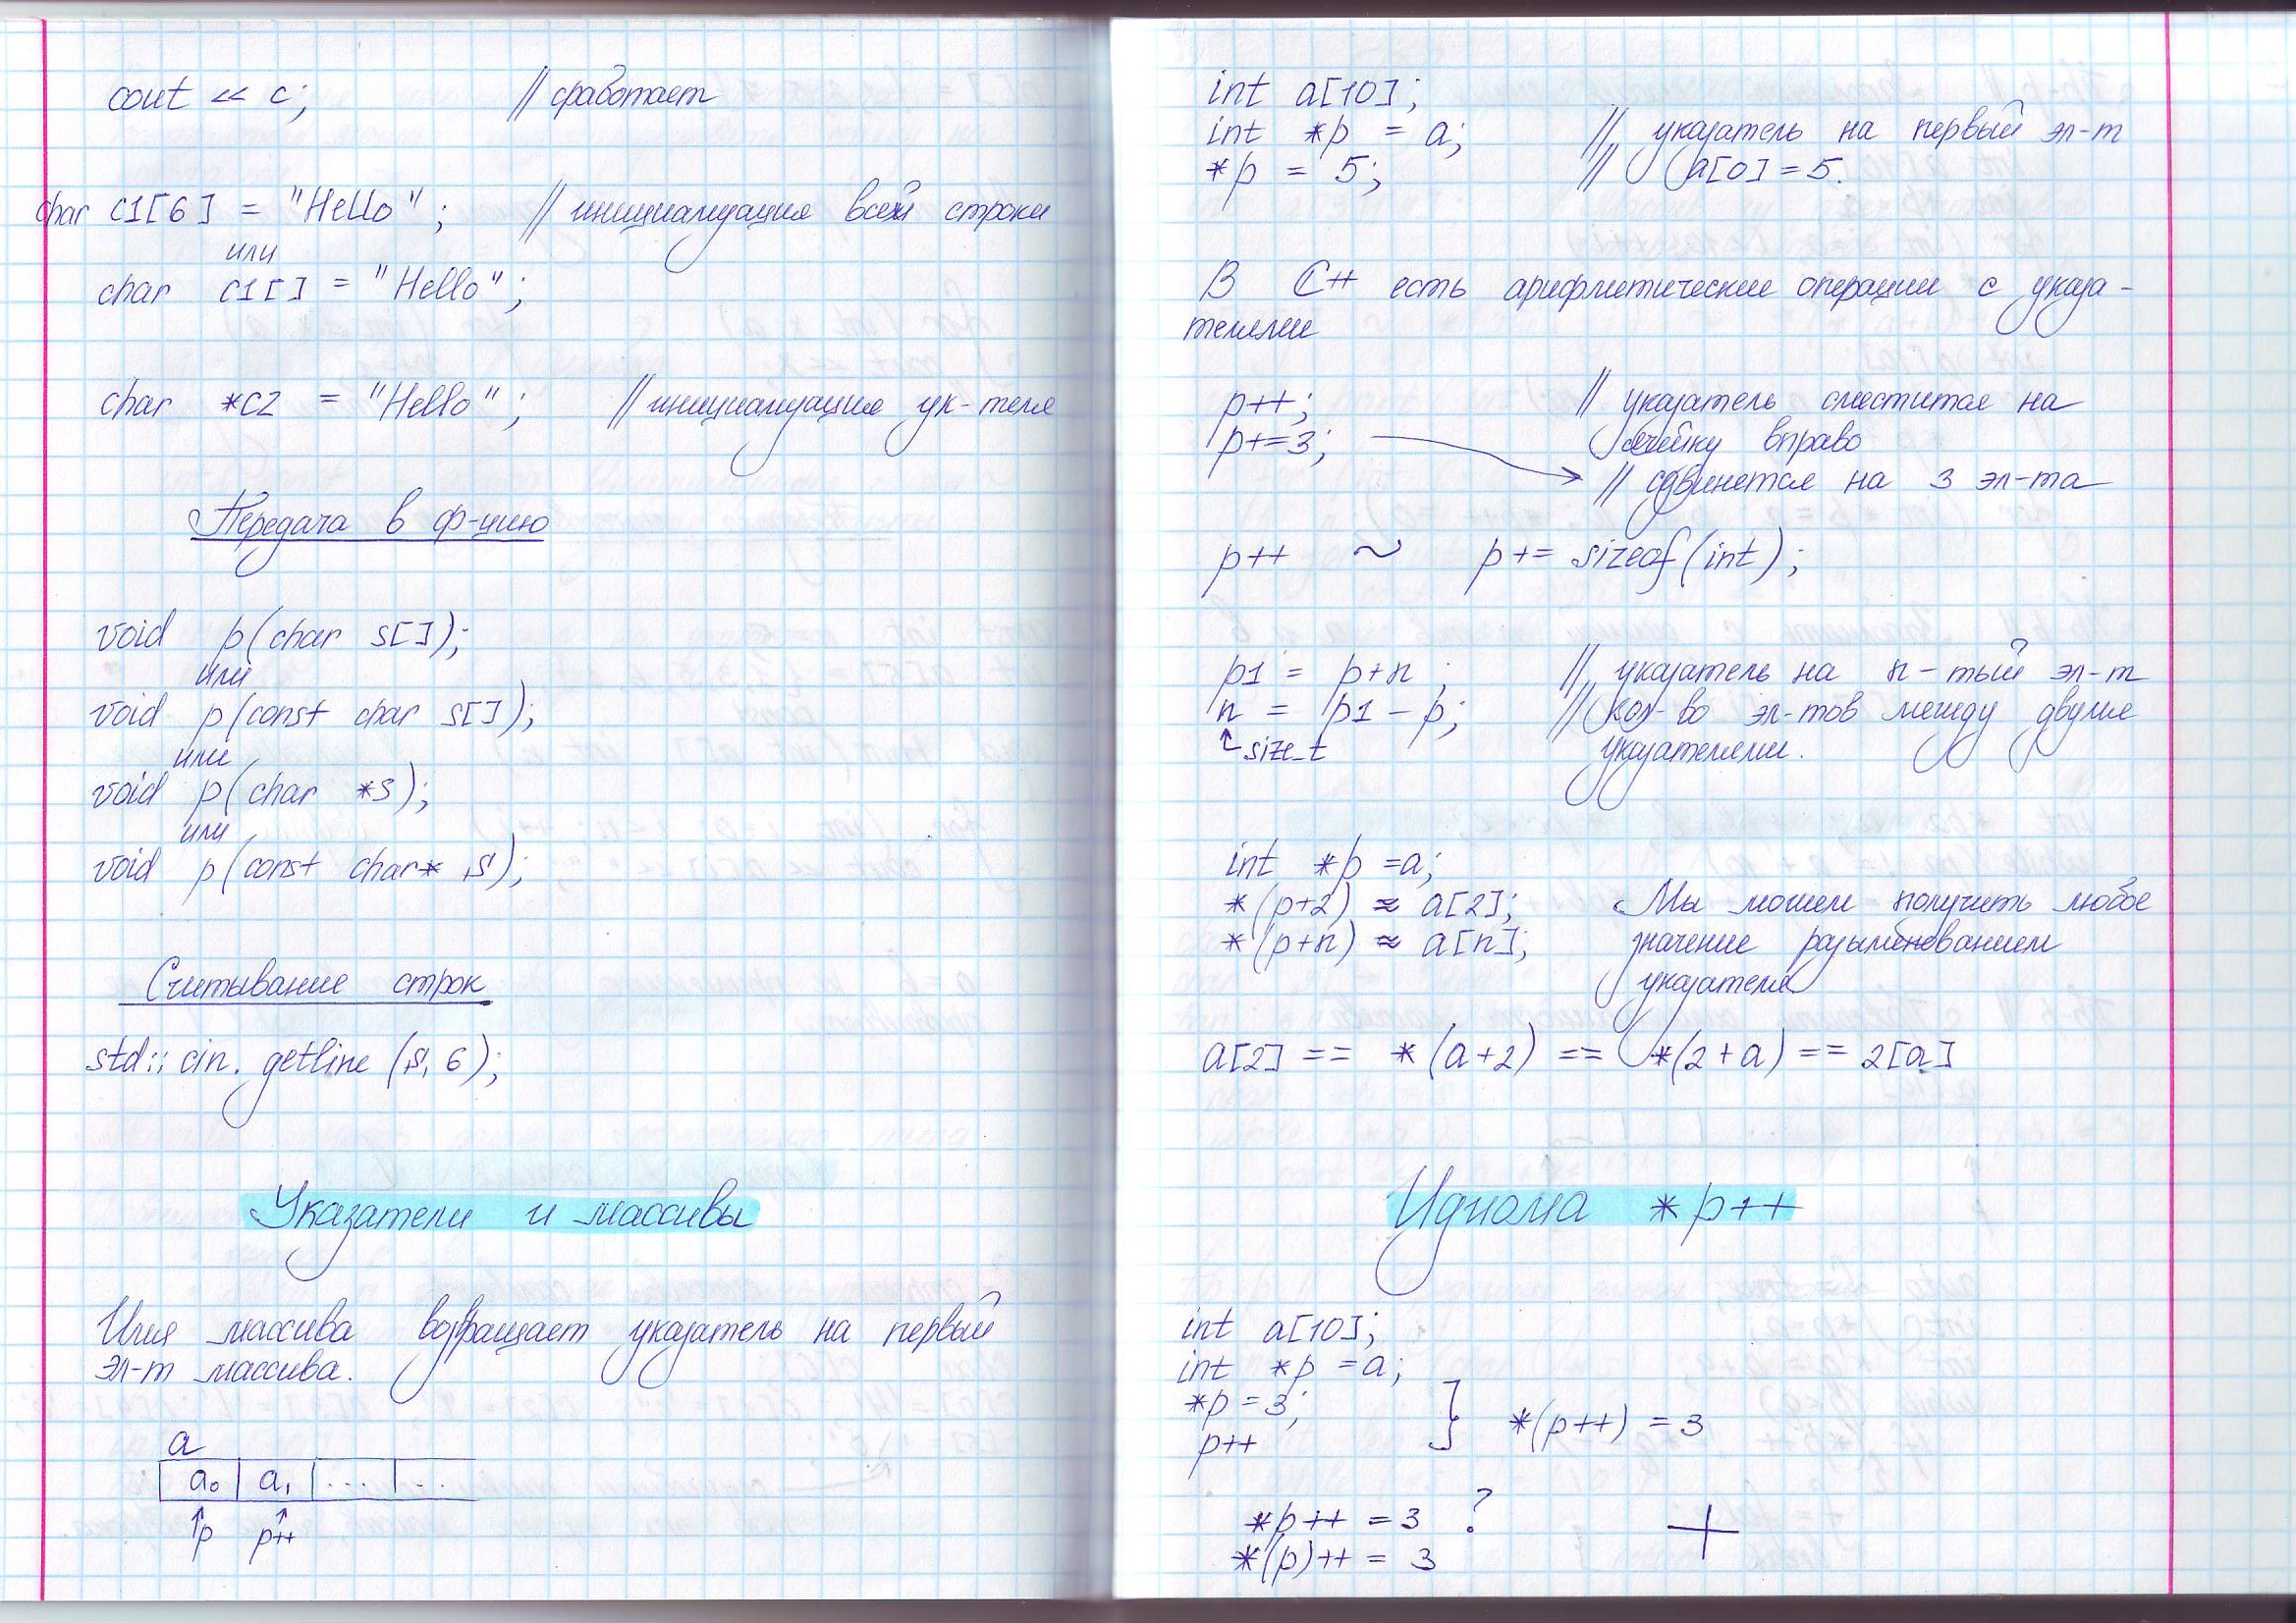 cout << c; // сработает
char c1[6] = "Hello"; // инициализация всей строки
или
char c1[] = "Hello";
char *c2 = "Hello"; // инициализация ук-теля
Передача в ф-цию
void p(char s[]);
или
void p(const char s[]);
или
void p(char *s);
или
void p(const char* s);
Считывание строк
std::cin.getline(s, 6);
Указатели и массивы
Имя массива возвращает указатель на первый
эл-т массива.
a
a₀ a₁ ... ..
p p++
int a[10];
int *p = a; // указатель на первый эл-т
*p = 5; // a[0] = 5.
В C++ есть арифметические операции с указа-
телями
p++; // указатель сместится на
p+=3; ячейку вправо
// сдвинется на 3 эл-та
p++ ~ p += sizeof(int);
p1 = p+n; // указатель на n-тый эл-т
n = p1 - p; // кол-во эл-тов между двумя
size_t указателями.
int *p = a;
*(p+2) ≈ a[2]; Мы можем получить любое
*(p+n) ≈ a[n]; значение разыменованием
указателя
a[2] == *(a+2) == *(2+a) == 2[a]
Идиома *p++
int a[10];
int *p = a;
*p = 3;
p++ } *(p++) = 3
*p++ = 3 ?
*(p)++ = 3